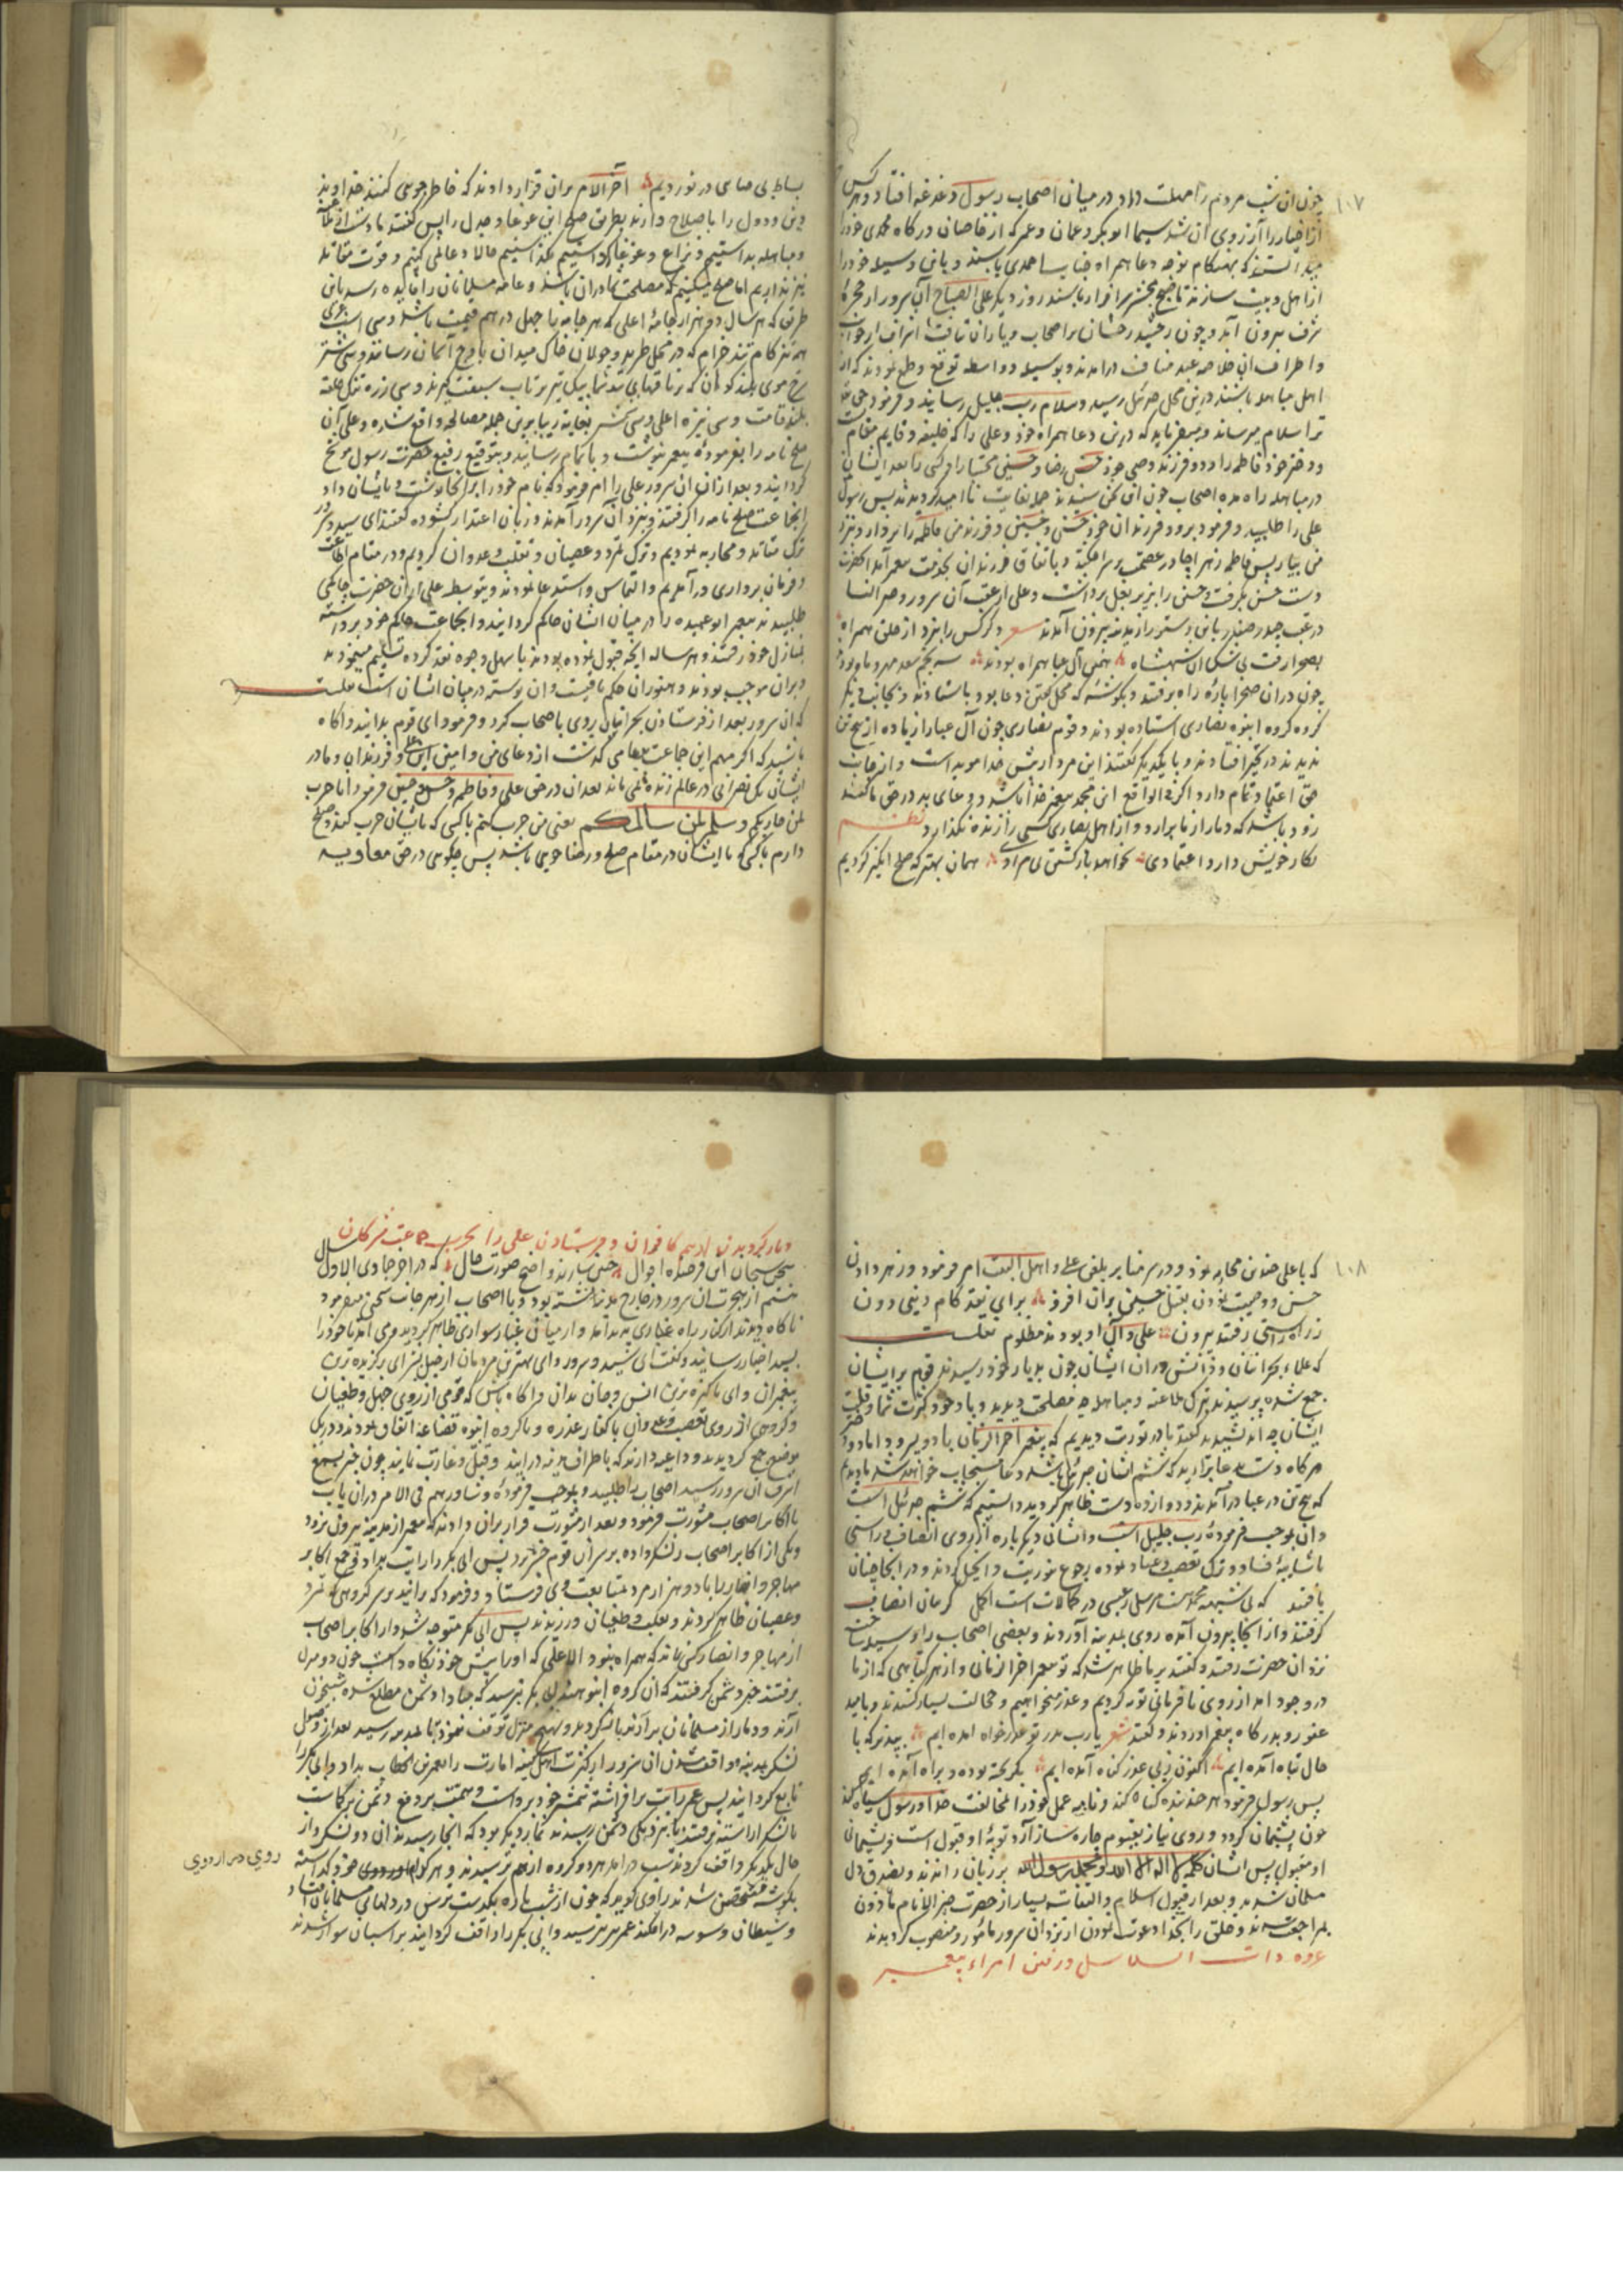 ۱۰۷
چون ان شب مردم را مهلت داد در میان اصحاب رسول دغدغه افتاد و هر کس
از اخیار را آرزوی آن شد سیما ابوبکر و عثمان و عمر که از خاصان درکاه محمدی خود را
از اهل و بیت سازند تا صبح محشر سرافراز باشند روز دیکر علی الصباح آن سرور از حجرهٔ
شرف بیرون آمد و چون خورشید رخشان بر اصحاب و یاران تافت اشراف
و اطراف ان خلاصه عبد مناف درامدند و بوسیله و واسطه توقع و طمع نمودند که از
اهل مباهله باشند درین محل جبرئیل رسید و سلام رب جلیل رسانید و فرمود حق تعالی
ترا سلام میرساند و میفرماید که درین دعا همراه خود علی را که خلیفه و قایم مقام
و دختر خود فاطمه را و دو فرزند وصی خود حسن رضا و حسین مجتبا را و کسی را بعد ایشان
در مباهله راه مده اصحاب چون این سخن شنیدند جملا بغایت ناامید کردیدند پس رسول
علی را طلبید و فرمود برو و فرزندان خود حسن و حسین و فرزند من فاطمه را بردار و نزد
من بیار پس فاطمه زهرا چادر عصمت بر سر افکند و باتفاق فرزندان بخدمت پیغمبر آمد انحضرت
دست حسن بکرفت و حسین را بزیر بغل برداشت و علی از عقب آن سرور و خیر النسا
در عقب حیدر صفدر باین دستور از مدینه بیرون آمدند شعر
بصحرا رفت بی شک ان شهنشاه همین آل عبا همراه بودند
چون دران صحرا پاره راه برفتند و بکوشه که محل کفتن دعا بود باستادند و بجانب دیکر
کروه کروه انبوه نصاری استاده بودند و قوم نصاری چون آل عبا را زیاده از پنج تن
ندیدند در تحیر افتادند و با یکدیکر کفتند این مرد را پیش خدا موید است و از نجات
حق اعتماد تمام دارد اکر فی الواقع این محمد پیغمبر خدا باشد و دعای بد در حق ما کند
زود باشد که دمار از ما برارد و از اهل نصاری کسی را زنده نکذارد نظم
بکار خویش دارد اعتمادی نخواهد بازکشتن بی مرادی همان بهتر که صلح انکیز کردیم
بساط بی صاصی در نوردیم اخر الامر بران قرار دادند که خاطر جویی کنند خداوند
دین و دول را باصلاح دارند بطریق صلح این غوغا و جدل را پس کفتند یا محمد از ملاعنه
و مباهله بداشتیم و نزاع و غوغا کذاشتیم حالا دعا می کنیم و قوت مقاتله
نیز نداریم اما صلح میکنیم که مصلحت ما دران باشد و عامه مسلمانان را فایده رسد باین
طریق که هر سال دو هزار جامهٔ اعلی که هر جامه با چهل درهم قیمت باشد و سی اسب
تیز کام تند خرام که در محل طرید و جولان خاک میدان باوج آسمان رسانند و سی شتر
سرخ موی بلند کوهان
بلند قامت و سی نیزه اعلی و سی شمشیر بغایة زیبا برین جمله مصالحه واقع شده و علی آن
صلح نامه را بفرمودهٔ پیغمبر بنوشت و باتمام رسانید و بتوقیع رفیع حضرت رسول موشح
کردانید و بعد ازان ان سرور علی را امر فرمود که نام خود را برانجا نوشت و بایشان داد
انجماعت صلح نامه را کرفتند و بنزد آن سرور آمدند و زبان اعتذار کشوده کفتند ای سید و سرور
ترک مقاتله و محاربه نمودیم و ترک تمرد و عصیان و تغلب و عدوان کردیم و در مقام اطاعت
و فرمان برداری درآمدیم و التماس و استدعا نمودند و بتوسط علی ازان حضرت حاکمی
طلبیدند پیغمبر ابو عبیده را در میان ایشان حاکم کردانید و انجماعت حاکم خود برداشته
بمنازل خود رفتند و هر ساله انچه قبول نموده بودند باسهل وجوه نقد کرده تسلیم مینمودند
و بران موجب بودند و هنوز ان حکم باقیست و ان پوسته در میان ایشان است نقلست
که ان سرور بعد از فرستادن نجرانیان روی باصحاب کرد و فرمود ای قوم بدانید و اکاه
باشید که اکر مهم این جماعت بجایی کذشت از دعای من و امین این علی و فرزندان و مادر
ایشان یکی نصرانی در عالم زنده نمی ماند بعد ازان در حق علی و فاطمه و حسن و حسین فرمود انا حرب
لمن حاربکم و سلم لمن سالمکم یعنی من حرب کنم با کسی که با ایشان حرب کند و صلح
دارم با کسی که با ایشان در مقام صلح و رضا جویی باشد پس چکویی در حق معاویه
۱۰۸
که با علی چندین محاربه نمود و در سر منابر بلعن علی و اهل البیت امر فرمود و زهر دادن
حسن و وصیت نمودن بقتل حسین بران افزود برای نقد کام دینی دون
ز راه راستی رفتند بیرون علی و آل او بودند مظلوم نقلست
که علماء نجرانیان و دانشوران ایشان چون بدیار خود رسیدند قوم بر ایشان
جمع شده پرسیدند بترک ملاعنه و مباهله چه مصلحت دیدید و با وجود کثرت شما و قلت
ایشان چه اندیشیدید کفتند ما در تورت دیدیم که پیغمبر اخرالزمان با دو پسر و داماد و دختر
هر کاه دست بدعا بردارند که ششم ایشان جبرئیل باشد دعا مستجاب خواهد شد ما دیدیم
که پنج تن در عبا درآمدند و دوازده دست ظاهر کردید دانستیم که ششم جبرئیل است
و ان بموجب فرمودهٔ رب جلیل است و ایشان دیکر باره از روی انصاف و راستی
با شایبهٔ فساد و ترک تعصب و عناد نموده رجوع بتوریت و انجیل کردند و در انجا چنان
یافتند که بی شبهه محمد پیغمبر مرسل و عیسی در کمالات است اکمل کریبان انصاف
کرفتند و از انجا بیرون آمده روی بمدینه آوردند و بعضی اصحاب را وسیله ساخته
نزد ان حضرت رفتند و کفتند بر ما ظاهر شد که تو پیغمبر اخرالزمانی و از هر کناهی که از ما
در وجود امد از روی نافرمانی توبه کردیم و عذر میخواهیم و خجالت بسیار کشیدند و بامید
عفو رو بدرکاه پیغمبر اوردند و کفتند شعر یا رب بدر تو عذرخواه امده ایم بپذیر که با
حال تباه آمده ایم اکنون ز پی عذر کناه آمده ایم بکریخته بوده و براه آمده ایم
پس رسول فرمود هر چند بنده کناه کند و نامه عمل خود را بمخالفت خدا و رسول سیاه کند
چون پشیمان کردد و روی نیاز بقیوم چاره ساز آرد توبهٔ او قبول است و پشیمانی
او مقبول پس ایشان کلمه لا اله الا الله و محمد رسول الله بر زبان راندند و بصدق دل
مسلمان شدند و بعد از قبول اسلام و التفات بسیار از حضرت خیر الانام ماذون
بمراجعت شدند و خلق را بخدا دعوت نمودن از نزد ان سرور مامور و منصوب کردیدند
غزوه ذات السلاسل و رفتن امراء پیغمبر
و باز کردیدن از بیم کافران و فرستادن علی را بحرب جماعت مشرکان
سخن سنجان این فرخنده احوال چنین سازند واضح صورت حال که در اخر جمادی الاول سال
هشتم از هجرت ان سرور در خارج مدینه نشسته بود و با اصحاب از هر جانب سخن میفرمود
ناکاه دیدند از کنار راه غباری پدید آمد و از میان غبار سواری ظاهر کردید و می آمد تا خود را
بسید اخیار رسانید و کفت ای سید و سرور و ای بهترین مردمان از خیل بشر ای برکزیده ترین
پیغمبران و ای پاکیزه ترین انس و جان بدان و اکاه باش که قومی از روی جهل و طغیان
و کروهی از روی تعصب و عدوان با کفار عذره و با کروه انبوه قضاعه اتفاق نمودند و در یک
موضع جمع کردیدند و داعیه دارند که باطراف مدینه درایند و قتل و غارت نمایند چون خبر بسمع
اشرف ان سرور رسید اصحاب را طلبید و بموجب فرمودهٔ و شاورهم فی الامر دران باب
با اکابر اصحاب مشورت فرمود و بعد از مشورت قرار بران دادند که پیغمبر از مدینه بیرون نرود
و یکی از اکابر اصحاب را لشکر داده بر سر ان قوم خبر برد پس ابی بکر را رایت بداد و جمع اکابر
مهاجر و انصار را با دو هزار مرد بمتابعت وی فرستاد و فرمود که برانید بر سر کروهی که تمرد
و عصیان ظاهر کردند و تغلب و طغیان ورزیدند پس ابی بکر متوجه شد و از اکابر اصحاب
از مهاجر و انصار کسی نماند که همراه نبود الا علی که او را پیش خود نکاه داشت چون دو منزل
برفتند خبر دشمن کرفتند که ان کروه انبوه بیند ابی بکر بترسید که مبادا دشمن مطلع شده شبخون
آرند و دمار از مسلمانان برآرند باز کردید و بهیچ منزل توقف ننمود تا بمدینه رسید بعد از وصول
لشکر بمدینه و واقف شدن ان سرور از کثرت اهل کینه امارت را بعمر بن الخطاب بداد و ابی بکر را
تابع کردانید پس عمر رایت برافراشته شمشیر خود برداشت و همت بر دفع دشمن برکماشت
با لشکر اراسته برفتند تا بنزدیکی دشمن رسیدند نماز دیکر بود که انجا رسیدند ان دو لشکر از
حال یکدیکر واقف کردند شب درامد هر دو کروه از هم ترسیدند و هر کدام روی خود کذاشته
بکوشه متحصن شدند راوی کوید که چون از شب پاره بکذشت ترس در دلهای مسلمانان افتاد
و شیطان وسوسه درافکند عمر بترسید و ابی بکر را واقف کردانید بر اسبان سوار شدند